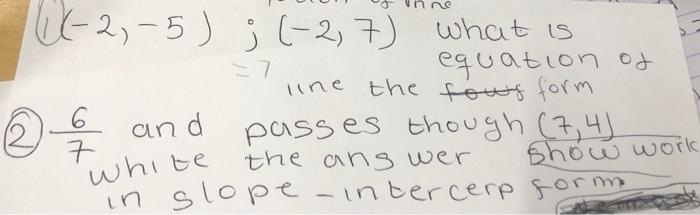 ① (-2,-5) ; (-2,7) what is
equation of
=7
line the form
② 6/7 and passes though (7,4)
white the answer show work
in slope-intercerp form